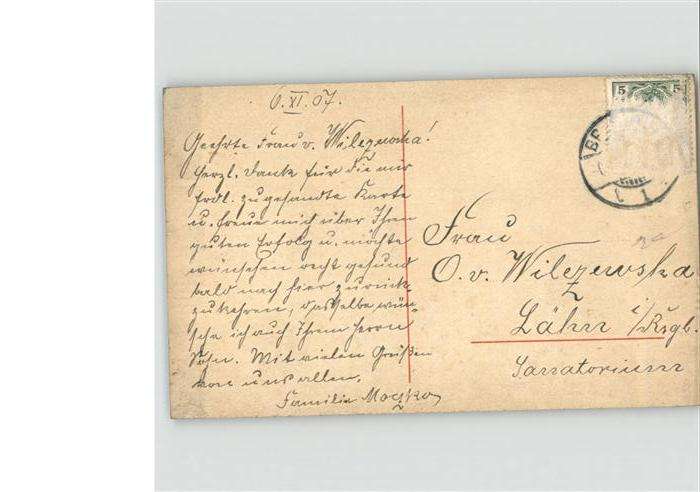 6. XI. 07.
Geehrte Frau v. Wilczewska!
Herzl. Dank für die mir
frdl. zugesandte Karte
u. freue mich über Ihren
guten Erfolg u. möchte
wünschen recht gesund
bald nach hier zurück-
zukehren, dasselbe wün-
sche ich auch Ihrem Herrn
Sohn. Mit vielen Grüßen
von uns allen.
Familie Moczko
5 5
BR
1
Frau
O. v. Wilczewska
Lähn i/Rsgb.
Sanatorium